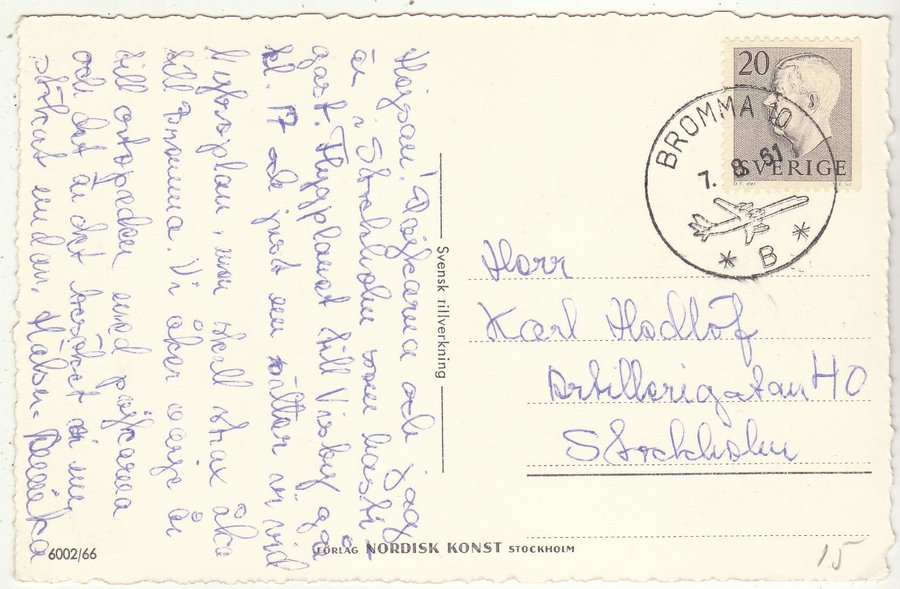 Hejsan! Pojkarna och jag
är i Stockholm som hasti-
gast. Flygplanet till Visby går
kl. 17 och just nu sitter vi vid
Nybroplan, men skall strax åka
till Bromma. Vi åker varje år
till ortopeden med pojkarna
och det är det besöket vi nu
stökat undan. Hälsn.
20
SVERIGE
BROMMA 10
7. 8 61
* B *
Herr
Karl Hedlöf
Artillerigatan 40
Stockholm
Svensk tillverkning
6002/66
FÖRLAG NORDISK KONST STOCKHOLM
15